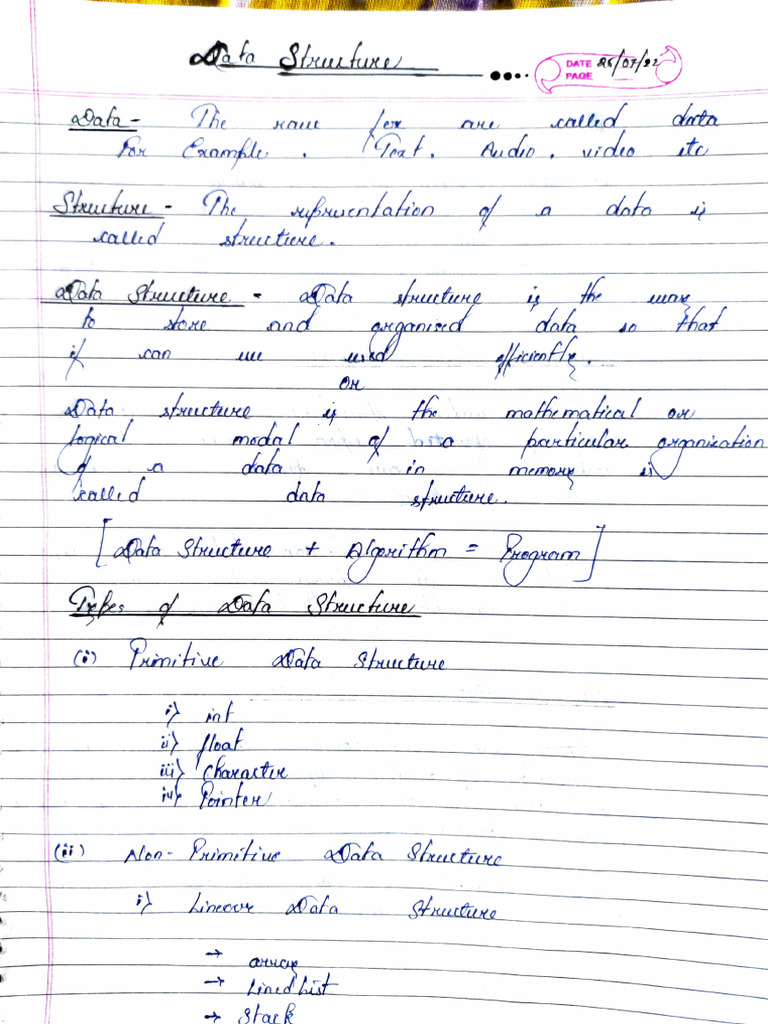 Data Structure
DATE 26/07/22
PAGE
Data - The raw are called data
For Example. Text. Audio. video etc
Structure - The representation of a data is
called structure.
Data Structure - Data structure is the way
to store and organised data so that
it can used efficiently.
or
Data structure is the mathematical or
logical modal of a particular organization
of a data in memory is
called data structure.
[Data Structure + Algorithm = Program]
Types of Data Structure
(i) Primitive Data Structure
i) int
ii) float
iii) Character
iv) Pointer
(ii) Non-Primitive Data Structure
i) Linear Data Structure
→ array
→ Lined List
→ Stack